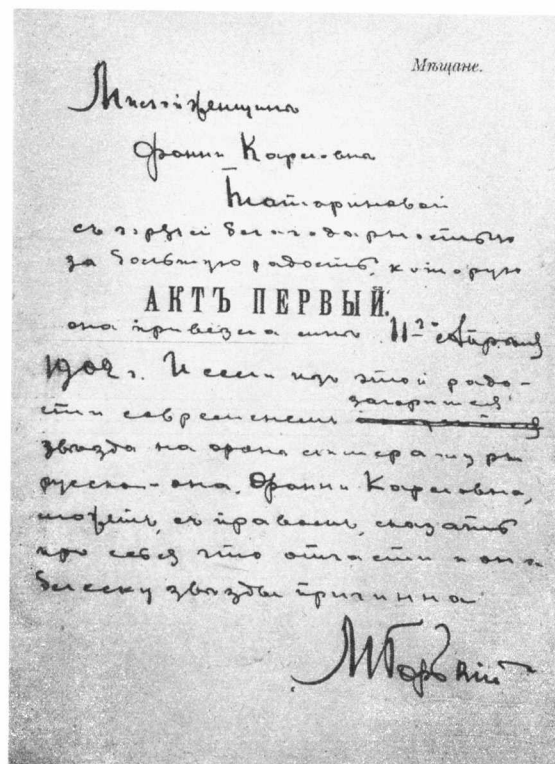 Мѣщане.
Милой женщинѣ
Фанни Карловнѣ
Татариновой
съ горячей благодарностью
за большую радость, которую
АКТЪ ПЕРВЫЙ.
она привезла мнѣ 11-го Апрѣля
1902 г. И если изъ этой радо-
сти современемъ загорится
звѣзда на фонѣ литературы
русской – она, Фанни Карловна,
можетъ, съ правомъ, сказать
про себя что отчасти и она
блеску звѣзды причинна
М Горькій